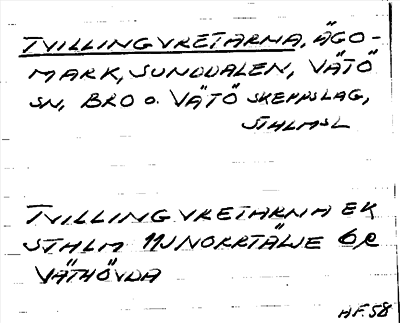 TVILLINGVRETARNA, ÄGO-
MARK, SUNDDALEN, VÄTÖ
SN, BRO o. VÄTÖ SKEPPSLAG,
STHLMSL
TVILLINGVRETARNA EK
STHLM 11J NORRTÄLJE 6R
VÄTHÖVDA
AF.58